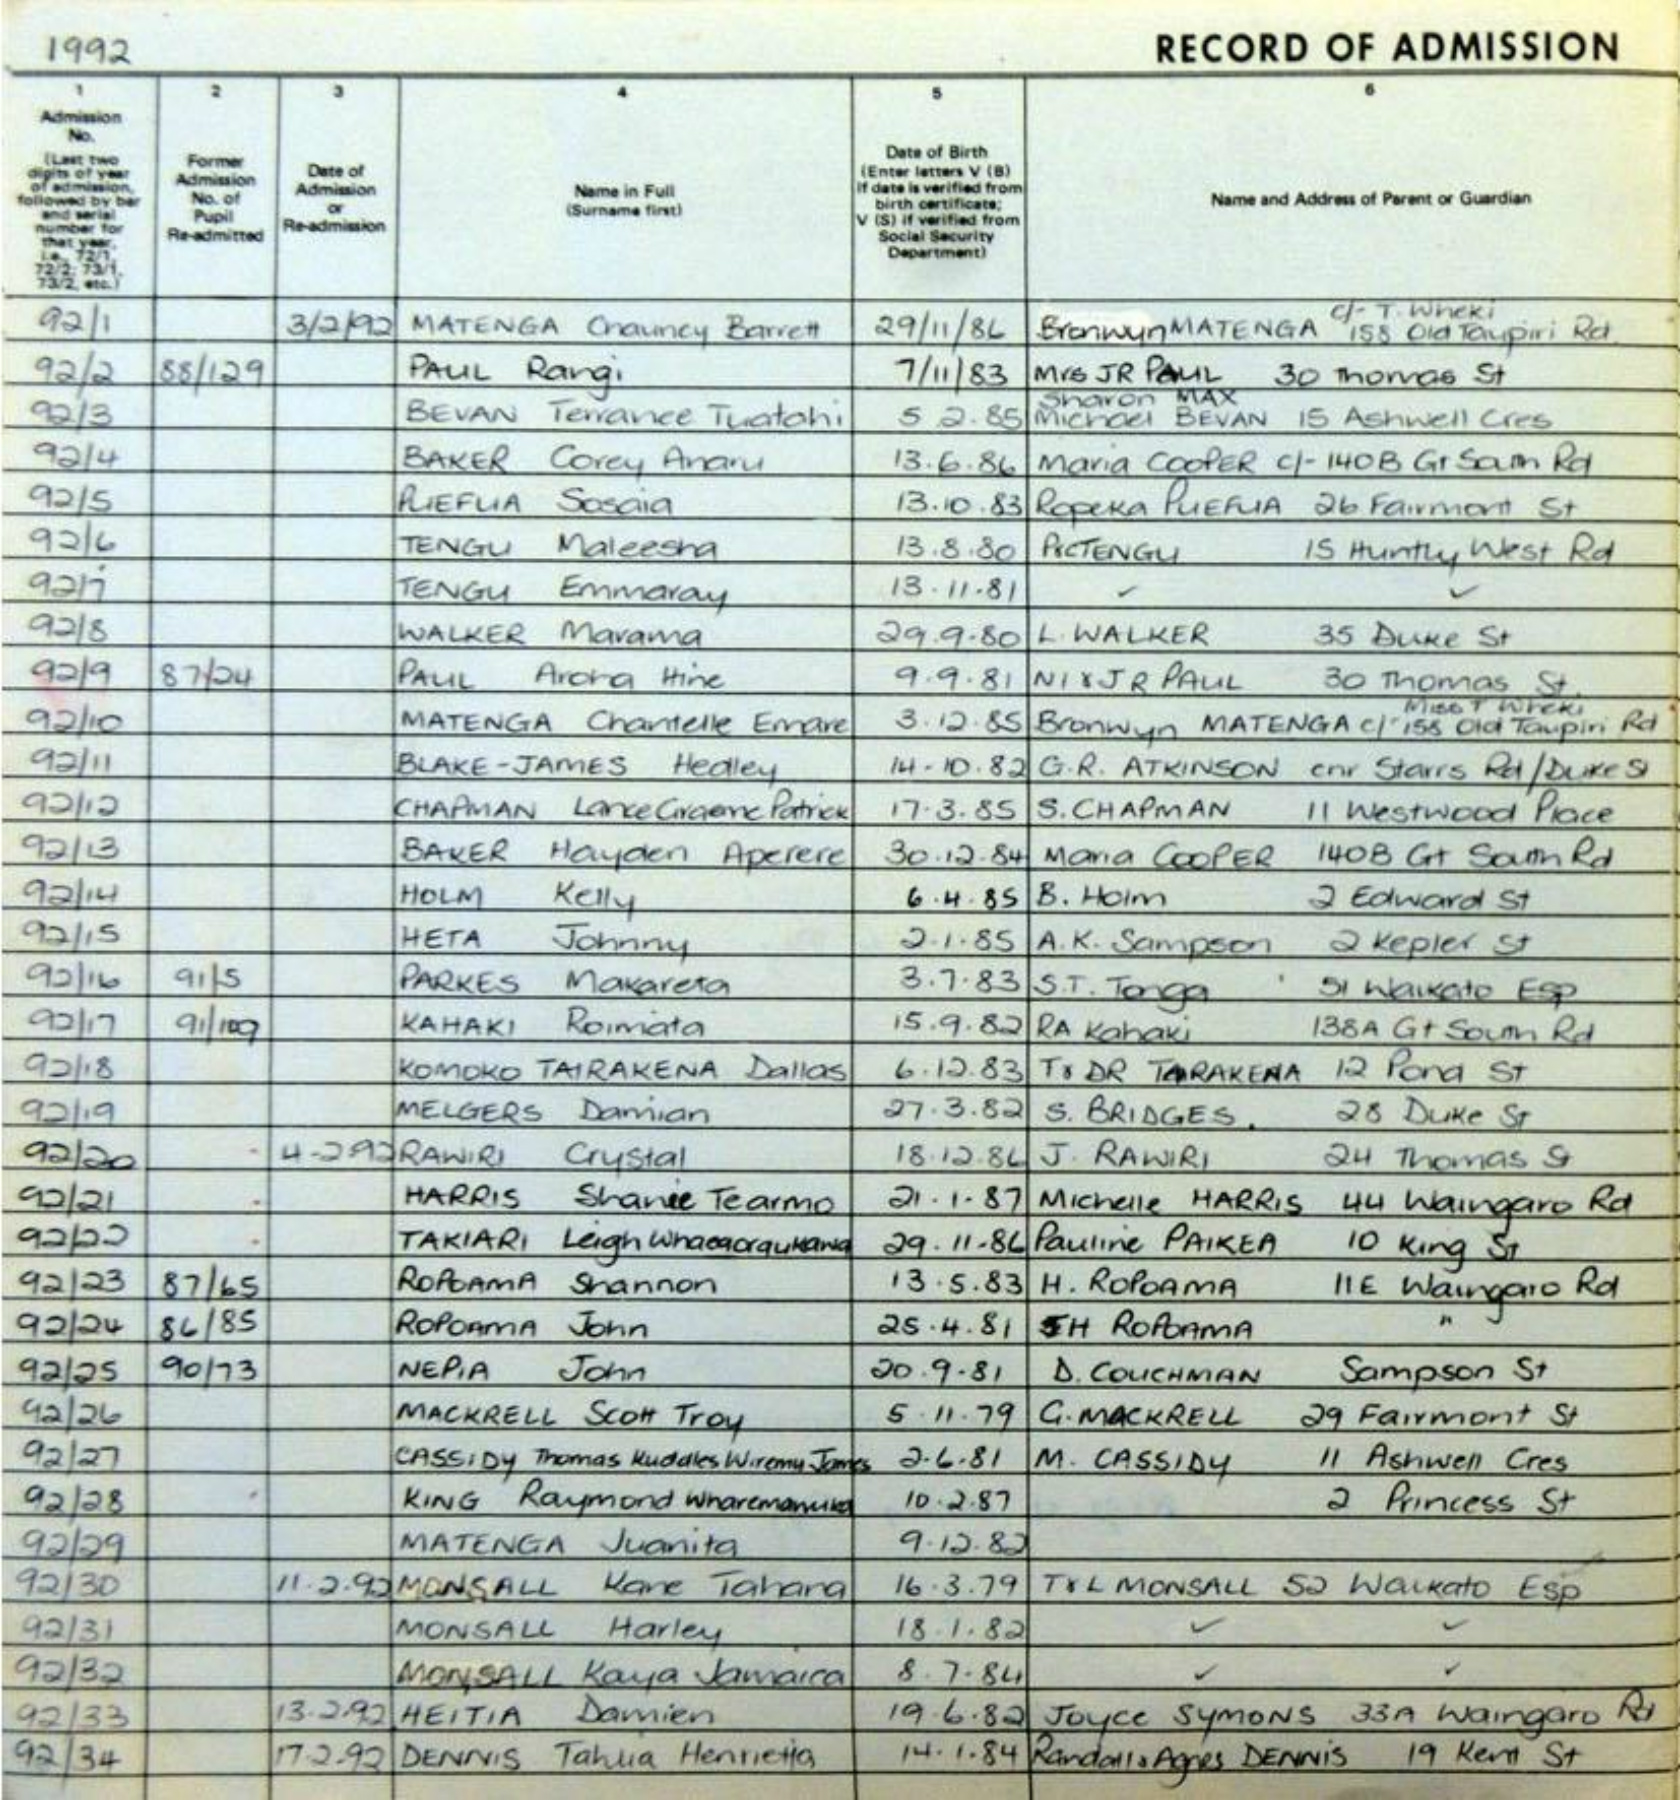 1992 RECORD OF ADMISSION
1 2 3 4 5 6
Admission No. (Last two digits of year of admission, followed by bar and serial number for that year, i.e., 72/1, 72/2; 73/1, 73/2, etc.)
Former Admission No. of Pupil Re-admitted
Date of Admission or Re-admission
Name in Full (Surname first)
Date of Birth (Enter letters V (B) if date is verified from birth certificate; V (S) if verified from Social Security Department)
Name and Address of Parent or Guardian
92/1 3/2/92 MATENGA Chauncy Barrett 29/11/86 Bronwyn MATENGA c/- T. Wheki 158 Old Taupiri Rd
92/2 88/129 PAUL Rangi 7/11/83 Mrs JR PAUL 30 Thomas St
92/3 BEVAN Terrance Tuatahi 5 2.85 Sharon MAX Michael BEVAN 15 Ashwell Cres
92/4 BAKER Corey Anaru 13.6.86 Maria COOPER c/- 140B Gt South Rd
92/5 PUEFUA Sosaia 13.10.83 Ropeka PUEFUA 26 Fairmont St
92/6 TENGU Maleesha 13.8.80 TENGU 15 Huntly West Rd
92/7 TENGU Emmaray 13.11.81 ✓ ✓
92/8 WALKER Marama 29.9.80 L. WALKER 35 Duke St
92/9 87/24 PAUL Aroha Hine 9.9.81 NI & JR PAUL 30 Thomas St.
92/10 MATENGA Chantelle Emare 3.12.85 Bronwyn MATENGA c/- Miss T Wheki 158 Old Taupiri Rd
92/11 BLAKE-JAMES Hedley 14-10.82 G.R. ATKINSON cnr Starrs Rd/Duke St
92/12 CHAPMAN Lance Graeme Patrick 17.3.85 S. CHAPMAN 11 Westwood Place
92/13 BAKER Hayden Aperere 30.12.84 Maria COOPER 140B Gt South Rd
92/14 HOLM Kelly 6.4.85 B. Holm 2 Edward St
92/15 HETA Johnny 2.1.85 A.K. Sampson 2 Kepler St
92/16 91/5 PARKES Makareta 3.7.83 S.T. Tonga 51 Waikato Esp
92/17 91/109 KAHAKI Roimata 15.9.82 RA Kahaki 138A Gt South Rd
92/18 KOMOKO TAIRAKENA Dallas 6.12.83 T & DR TAIRAKENA 12 Pona St
92/19 MELGERS Damian 27.3.82 S. BRIDGES. 28 Duke St
92/20 4-2.92 RAWIRI Crystal 18.12.86 J. RAWIRI 24 Thomas St
92/21 HARRIS Shanee Tearmo 21.1.87 Michelle HARRIS 44 Waingaro Rd
92/22 TAKIARI Leigh 29.11.86 Pauline PAIKEA 10 King St
92/23 87/65 ROPOAMA Shannon 13.5.83 H. ROPOAMA 11E Waingaro Rd
92/24 86/85 ROPOAMA John 25.4.81 H ROPOAMA "
92/25 90/73 NEPIA John 20.9.81 D. COUCHMAN Sampson St
92/26 MACKRELL Scott Troy 5.11.79 G. MACKRELL 29 Fairmont St
92/27 CASSIDY Thomas Kuddles Wiremu James 2.6.81 M. CASSIDY 11 Ashwell Cres
92/28 KING Raymond Wharemanuka 10.2.87 2 Princess St
92/29 MATENGA Juanita 9.12.82
92/30 11.2.92 MONSALL Kane Tahana 16.3.79 T & L MONSALL 52 Waikato Esp
92/31 MONSALL Harley 18.1.82 ✓ ✓
92/32 MONSALL Kaya Jamaica 8.7.84 ✓ ✓
92/33 13.2.92 HEITIA Damien 19.6.82 Joyce SYMONS 33A Waingaro Rd
92/34 17.2.92 DENNIS Tahlia Henrietta 14.1.84 Randall & Agnes DENNIS 19 Kent St